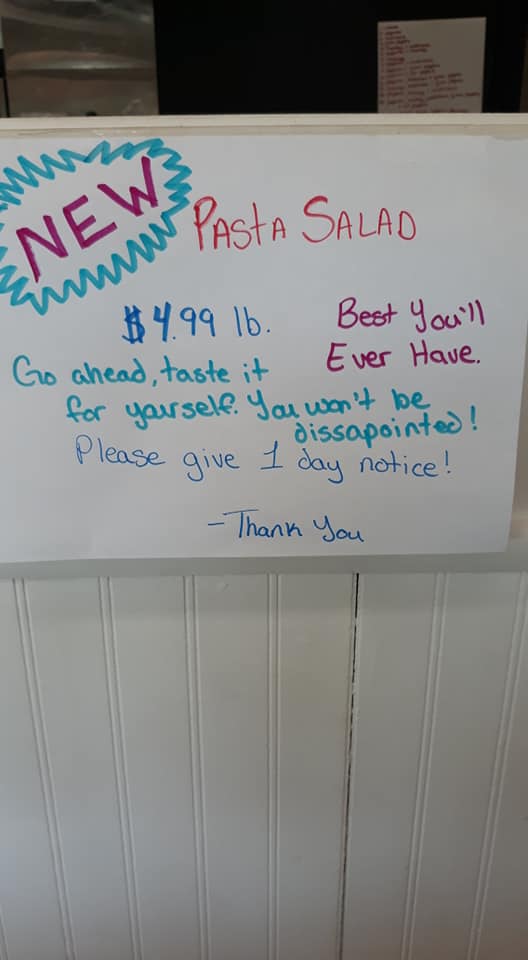 NEW
PASTA SALAD
$4.99 lb.
Best You'll
Ever Have.
Go ahead, taste it
for yourself. You won't be
dissapointed!
Please give 1 day notice!
- Thank You